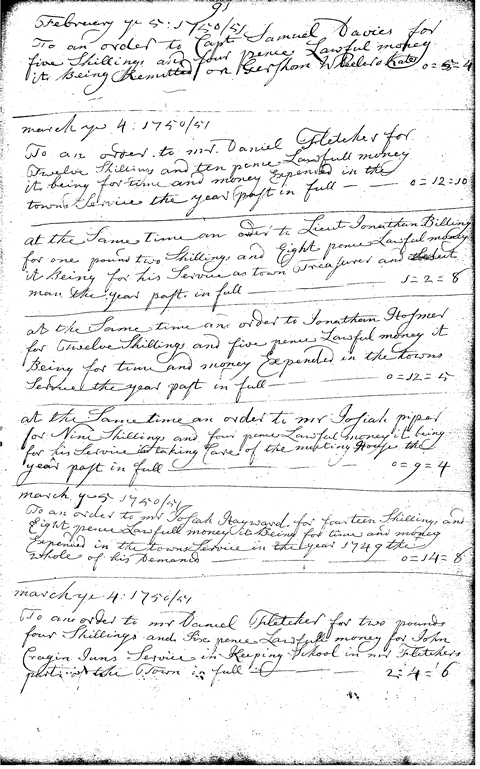 91
February ye 5: 1750/51
To an order to Capt Samuel Davies for
five Shillings and four pence Lawful money
it Being Remitted on Gershom Wheelers Rate 0=5=4
march ye 4: 1750/51
To an order to mr. Daniel Fletcher for
Twelve Shillings and ten pence Lawfull money
it being for time and money Expended in the
towns Service the year past in full 0=12=10
at the Same time an order to Lieut Jonathan Billing
for one pound two Shillings and Eight pence Lawful money
it Being for his Service as town Treasurer and
man the year past in full 1=2=8
at the Same time an order to Jonathan Hosmer
for Twelve Shillings and five pence Lawful money it
Being for time and money Expended in the towns
Service the year past in full 0=12=5
at the Same time an order to mr Josiah piper
for Nine Shillings and four pence Lawful money it being
for his Service taking Care of the meeting House the
year past in full 0=9=4
march ye 5 1750/51
To an order to mr Josiah Hayward for fourteen Shillings and
Eight pence Lawfull money it Being for time and money
Expended in the towns Service in the year 1749 the
whole of his Demand 0=14=8
march ye 4: 1750/51
To an order to mr Daniel Fletcher for two pounds
four Shillings and Six pence Lawfull money for John
Cragin Junr Service in Keeping School in mr Fletchers
part of the Town in full 2=4=6